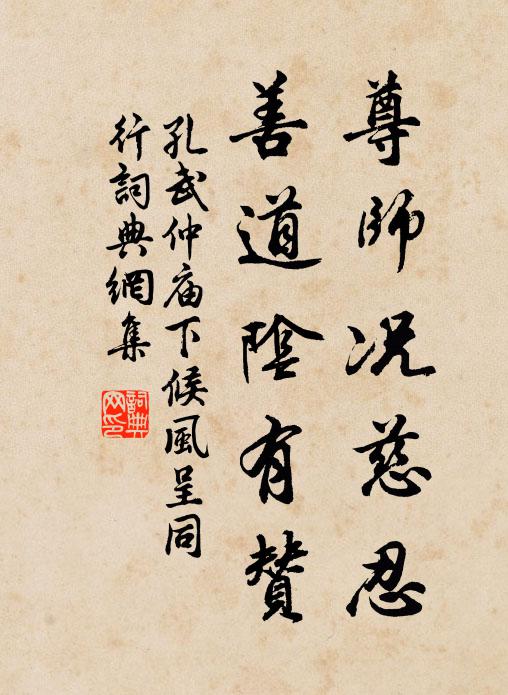 尊師况慈忍
善道陰有贊
孔武仲庙下候風呈同
行詞典網集
詞典
网印